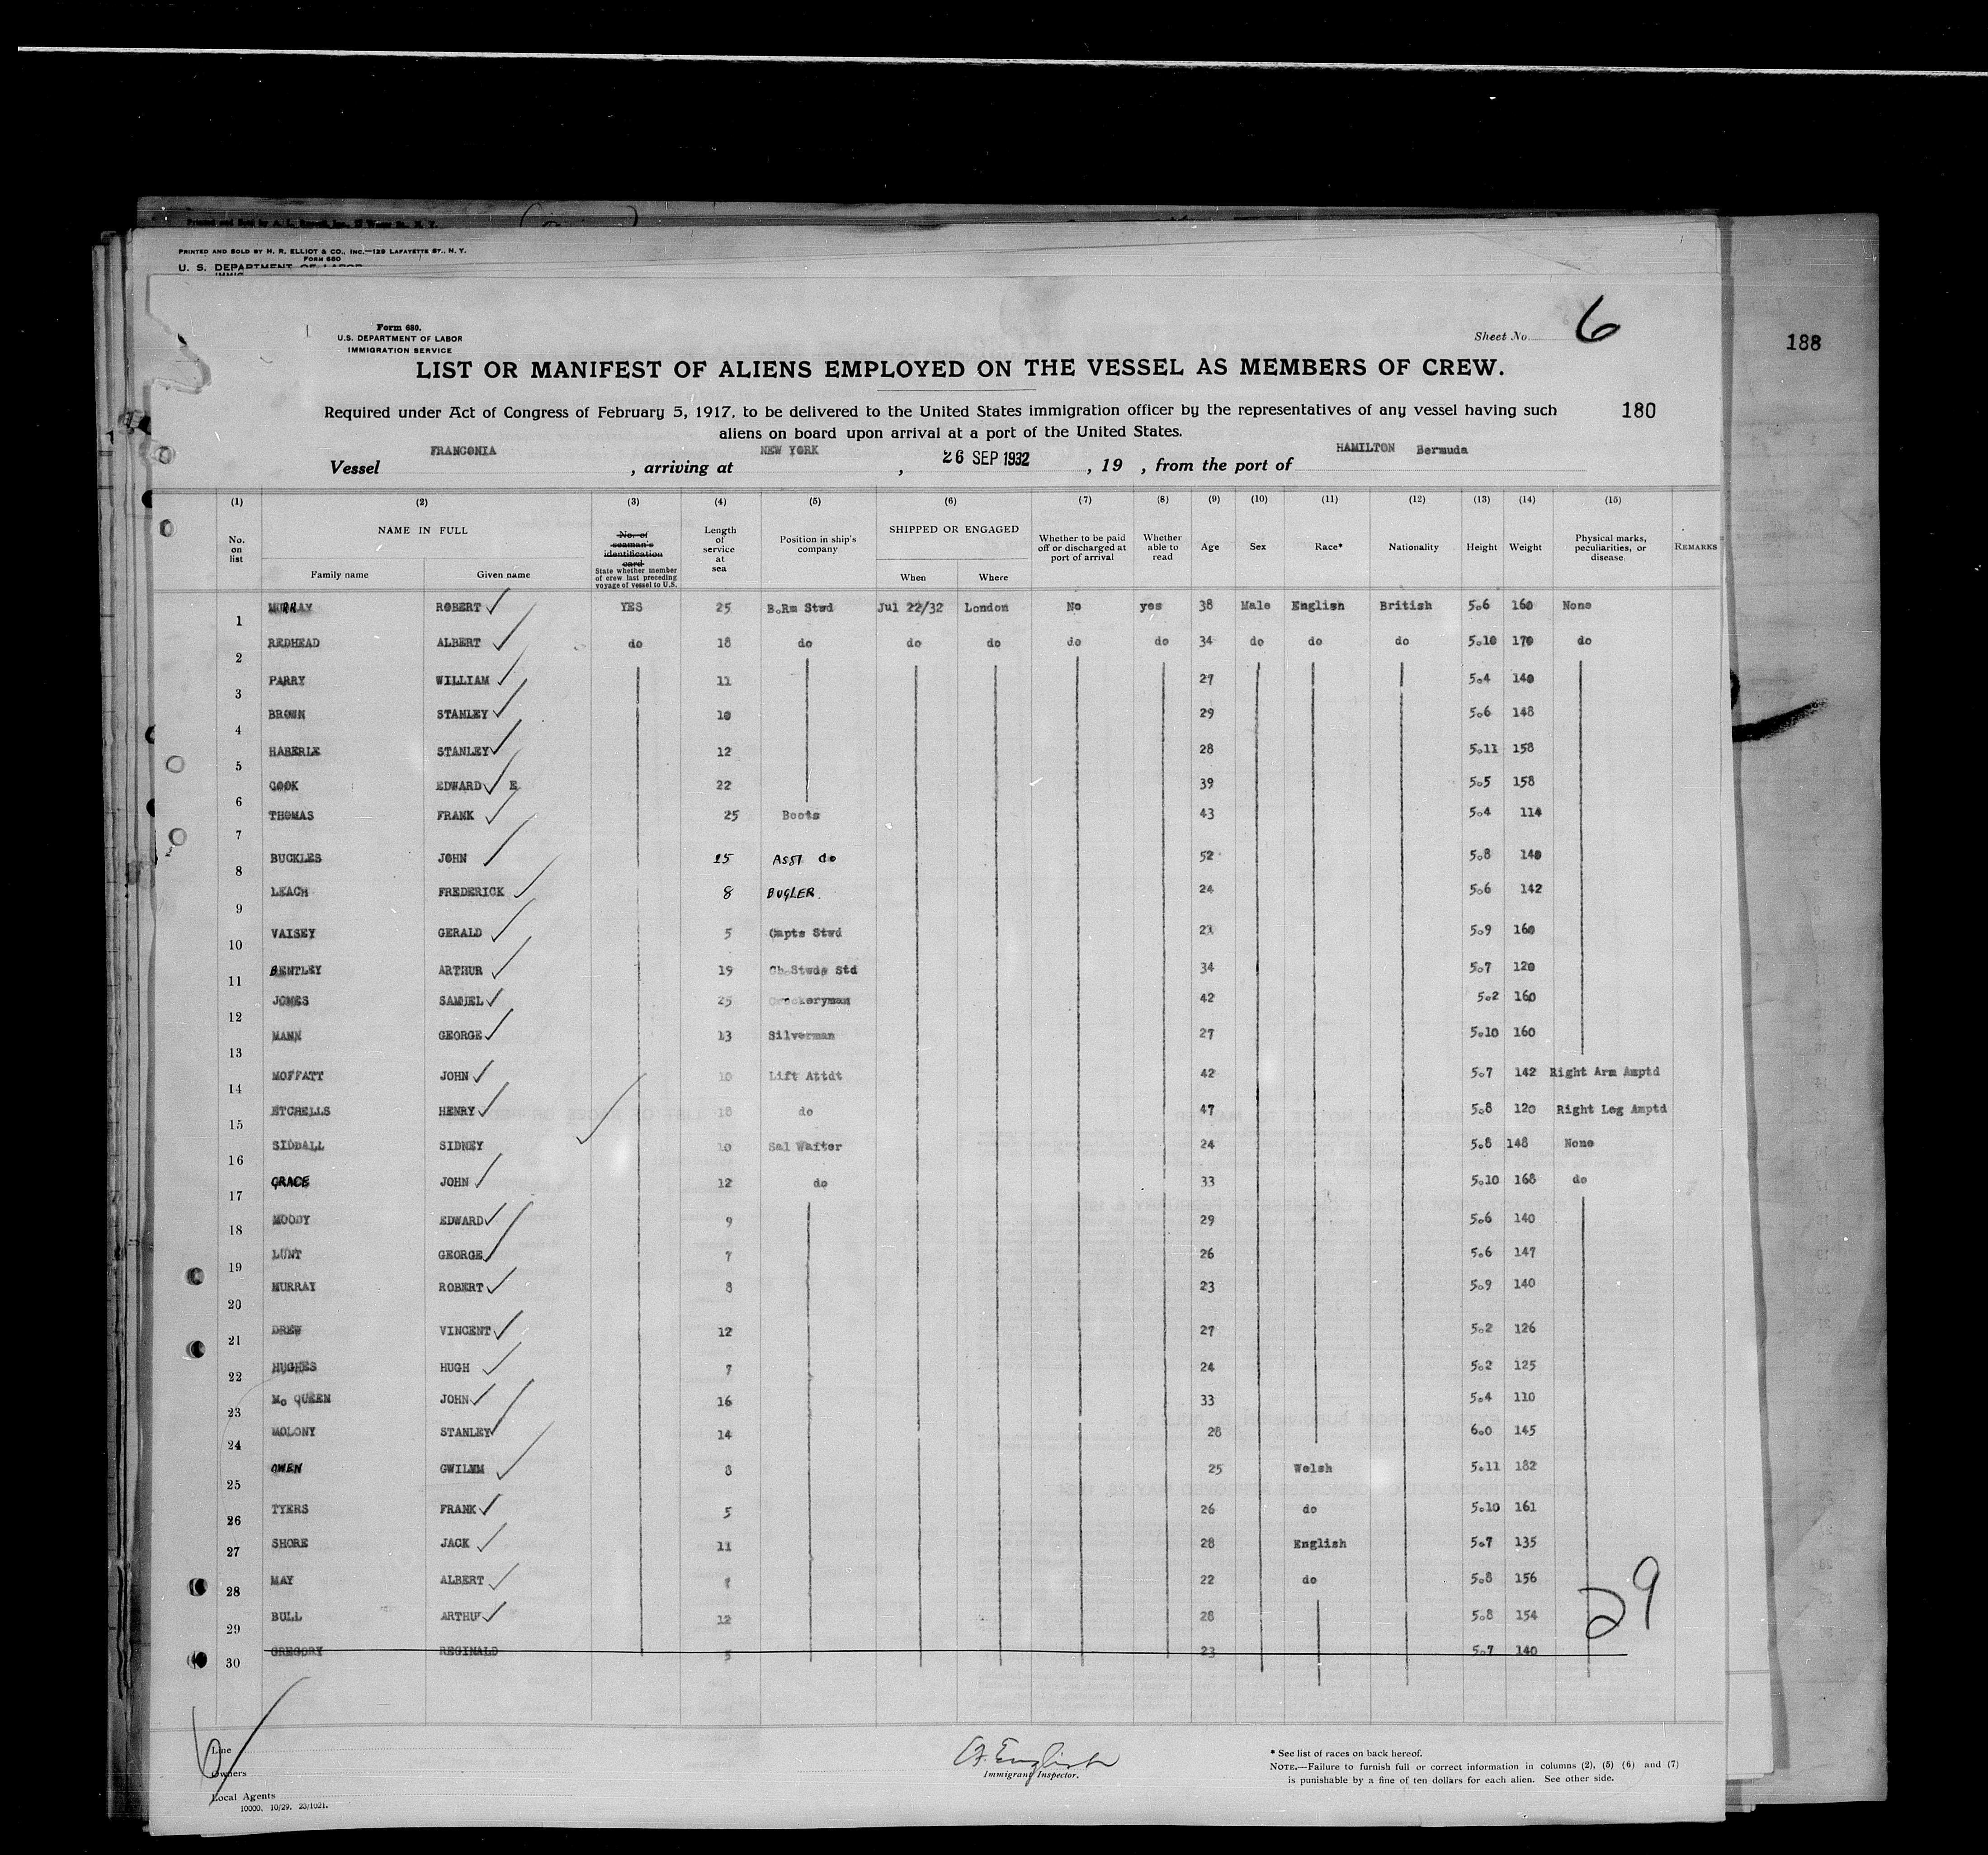 PRINTED AND SOLD BY H. R. ELLIOT & CO., INC.—129 LAFAYETTE ST., N. Y.
FORM 680
U. S. DEPARTMENT OF LABOR
188
Form 680.
U.S. DEPARTMENT OF LABOR
IMMIGRATION SERVICE
Sheet No. 6
LIST OR MANIFEST OF ALIENS EMPLOYED ON THE VESSEL AS MEMBERS OF CREW.
Required under Act of Congress of February 5, 1917, to be delivered to the United States immigration officer by the representatives of any vessel having such
180
aliens on board upon arrival at a port of the United States.
Vessel FRANCONIA, arriving at NEW YORK, 26 SEP 1932, 19 , from the port of HAMILTON Bermuda
(1) (2) (3) (4) (5) (6) (7) (8) (9) (10) (11) (12) (13) (14) (15)
No. on list NAME IN FULL Family name Given name No. of seaman's identification card State whether member of crew last preceding voyage of vessel to U.S. Length of service at sea Position in ship's company SHIPPED OR ENGAGED When Where Whether to be paid off or discharged at port of arrival Whether able to read Age Sex Race* Nationality Height Weight Physical marks, peculiarities, or disease. REMARKS
1 MURRAY ROBERT YES 25 B.Rm Stwd Jul 22/32 London No yes 38 Male English British 5.6 160 None
2 REDHEAD ALBERT do 18 do do do do do 34 do do do 5.10 170 do
3 PARRY WILLIAM 11 27 5.4 140
4 BROWN STANLEY 10 29 5.6 148
5 HABERLE STANLEY 12 28 5.11 158
6 COOK EDWARD E 22 39 5.5 158
7 THOMAS FRANK 25 Boots 43 5.4 114
8 BUCKLES JOHN 25 ASST do 52 5.8 140
9 LEACH FREDERICK 8 BUGLER. 24 5.6 142
10 VAISEY GERALD 5 Capts Stwd 21 5.9 160
11 BENTLEY ARTHUR 19 Ch.Stwds Std 34 5.7 120
12 JONES SAMUEL 25 Crockeryman 42 5.2 160
13 MANN GEORGE 13 Silverman 27 5.10 160
14 MOFFATT JOHN 10 Lift Attdt 42 5.7 142 Right Arm Amptd
15 ETCHELLS HENRY 18 do 47 5.8 120 Right Leg Amptd
16 SIDBALL SIDNEY 10 Sal Waiter 24 5.8 148 None
17 GRACE JOHN 12 do 33 5.10 168 do
18 MOODY EDWARD 9 29 5.6 140
19 LUNT GEORGE 7 26 5.6 147
20 MURRAY ROBERT 8 23 5.9 140
21 DREW VINCENT 12 27 5.2 126
22 HUGHES HUGH 7 24 5.2 125
23 Mc QUEEN JOHN 16 33 5.4 110
24 MOLONY STANLEY 14 28 6.0 145
25 OWEN GWILYM 8 25 Welsh 5.11 182
26 TYERS FRANK 5 26 do 5.10 161
27 SHORE JACK 11 28 English 5.7 135
28 MAY ALBERT 22 do 5.8 156
29 BULL ARTHUR 12 28 5.8 154
29
30 GREGORY REGINALD 5 23 5.7 140
Line
Owners
Local Agents
10000. 10/29. 23/1021.
A. English
Immigrant Inspector.
* See list of races on back hereof.
NOTE.—Failure to furnish full or correct information in columns (2), (5) (6) and (7)
is punishable by a fine of ten dollars for each alien. See other side.